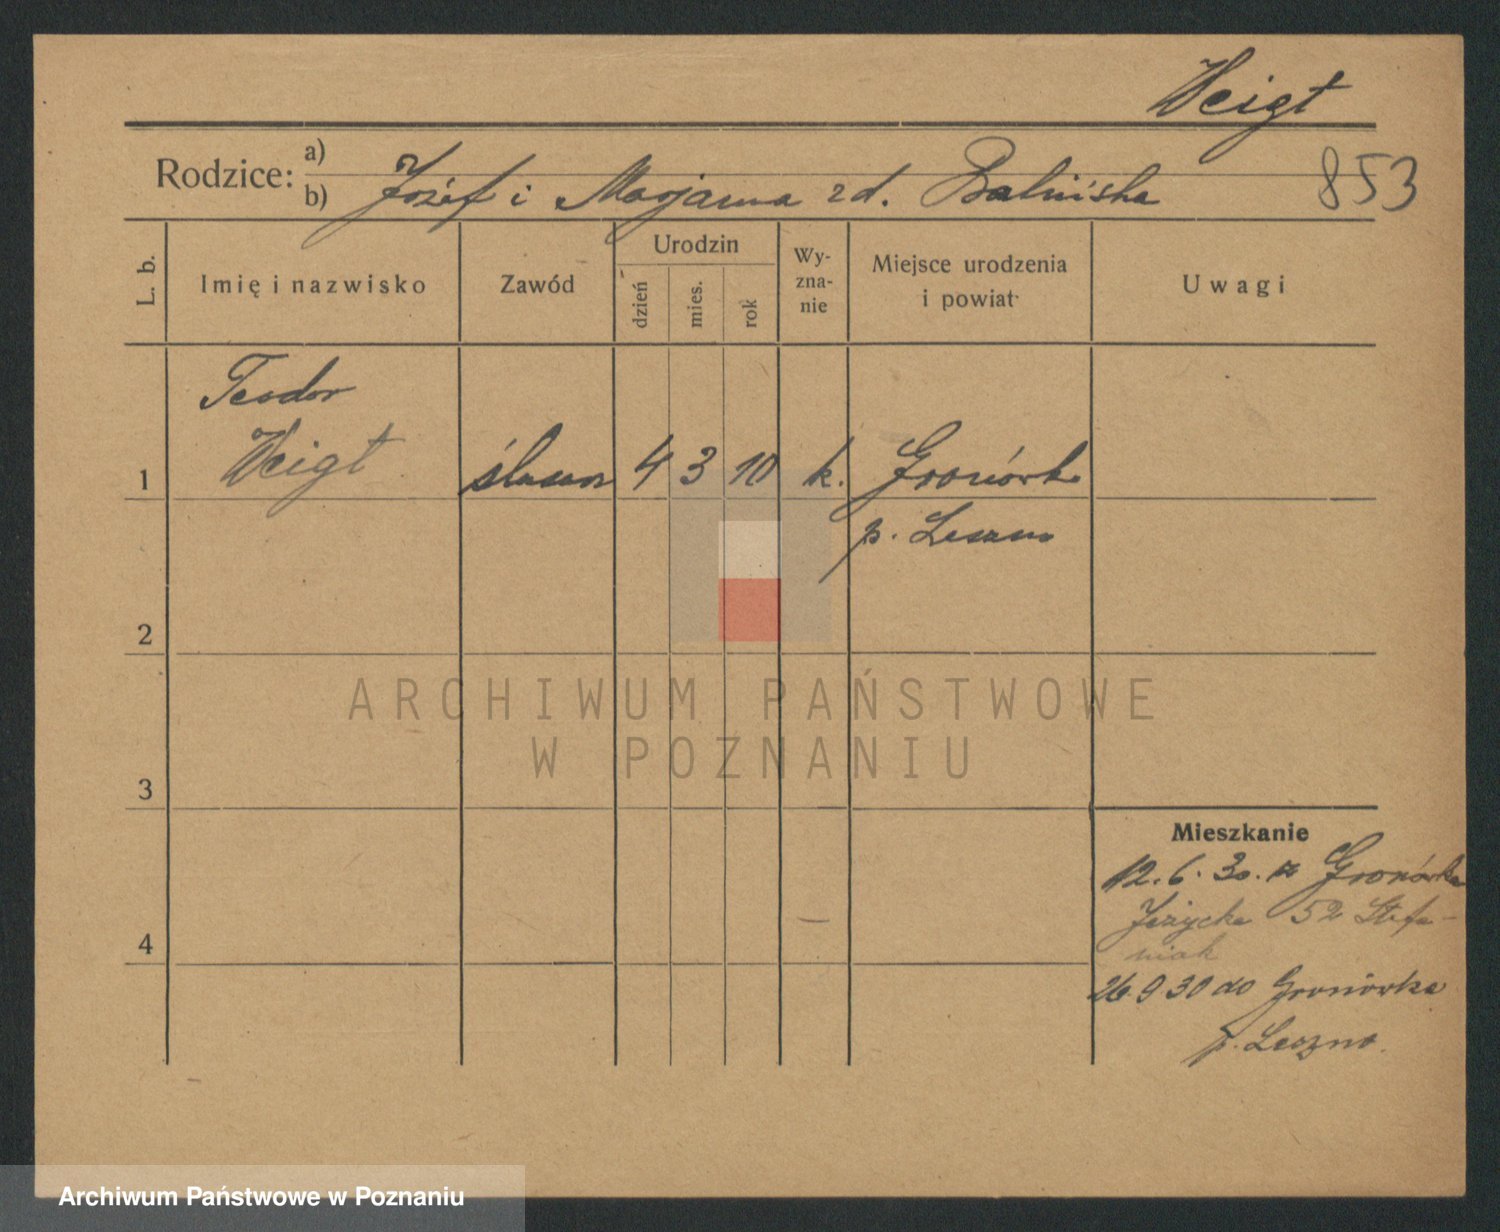 Weigt
Rodzice: a)
b) Józef i Marjanna zd. Balińska
853
L. b. Imię i nazwisko Zawód Urodzin dzień mies. rok Wy-zna-nie Miejsce urodzenia i powiat Uwagi
Teodor
1 Weigt ślusarz 4 3 10 k. Gronówko
p. Leszno
2
ARCHIWUM PAŃSTWOWE
W POZNANIU
3
Mieszkanie
12.6.30. z Gronówka
Jeżycka 52 Stefa-
4 niak
26.9.30 do Gronówka
p. Leszno.
Archiwum Państwowe w Poznaniu